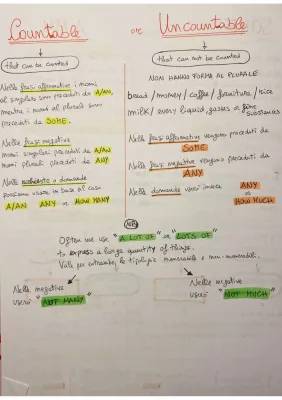 Countable or Uncountable
that can be counted
that can not be counted
Nelle frasi affermative i nomi
al singolare sono preceduti da A/AN,
mentre i nomi al plurale sono
preceduti da SOME.
Nelle frasi negative
nomi singolari preceduti da A/AN
nomi plurali preceduti da ANY
Nelle richieste o domande
possiamo usare in base al caso
A/AN ANY o HOW MANY
NON HANNO FORMA AL PLURALE
bread / money / coffee / furniture / rice
milk / every liquid, gasses or some
substances
Nelle frasi affermative vengono precedute da
SOME
Nelle frasi negative vengono precedute da
ANY
Nelle domande used invece ANY
o HOW MUCH
NB
Often we use "A LOT OF" or "LOTS OF"
to express a large quantity of things.
Vale per entrambe le tipologie numerabili e non-numerabili.
Nelle negative
userò "NOT MANY"
Nelle negative
userò "NOT MUCH"